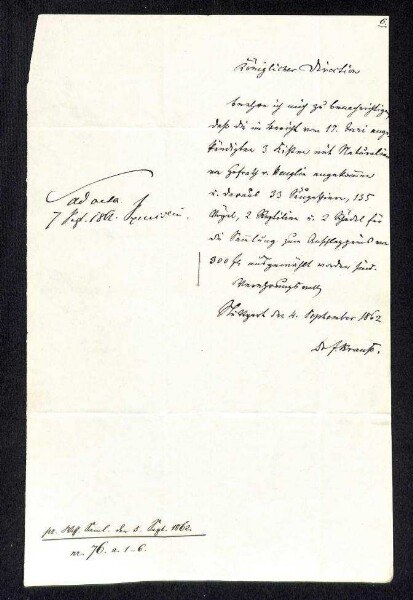 6.
Königlicher Direction
beehre ich mich zu benachrichtigen,
daß die im Bericht vom 17. Juni ange-
kündigten 3 Kisten mit Naturalien
von Hofrath v. Heuglin angekommen
u. daraus 33 Säugethiere, 135
Vögel, 2 Reptilien u. 2 Schädel für
die Sammlung zum Anschlagspreis von
300 fr. ausgewählt worden sind.
Verehrungsvoll
Stuttgart den 4. September 1862
Dr F. Krauss.
ad acta.
7 Sept. 1862.
pr. den 5. Sept. 1862.
nr. 76. a. 1-6.